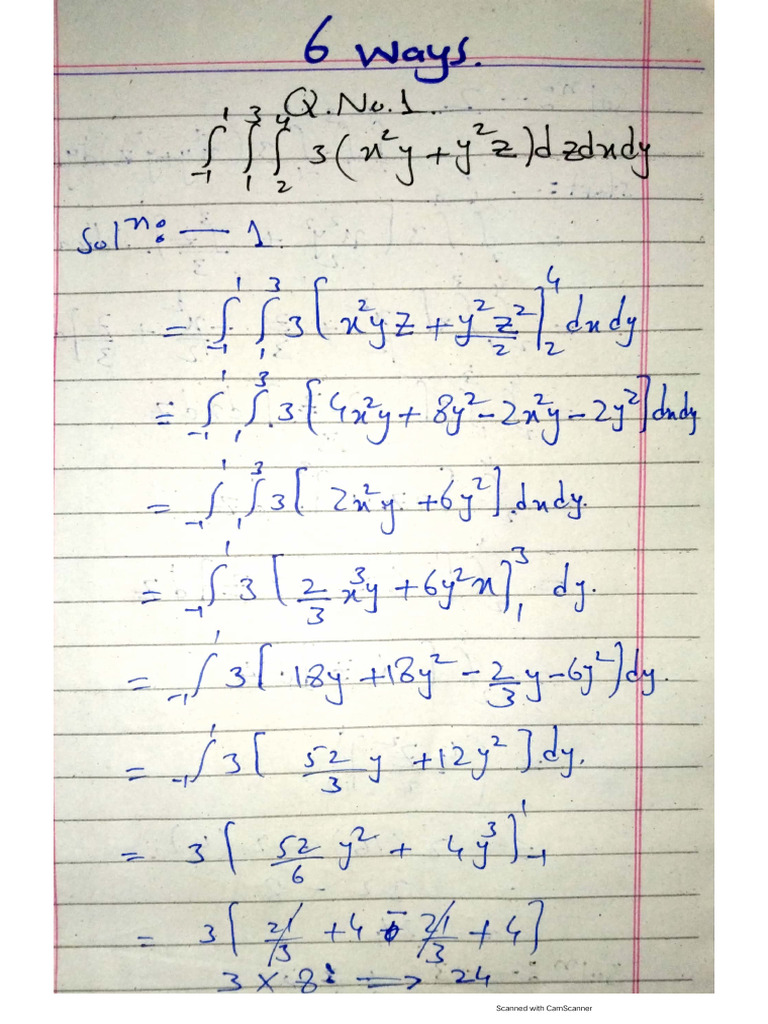 6 ways.
Q.No.1.
∫₋₁¹ ∫₁³ ∫₂⁴ 3(x²y + y²z)dzdxdy
Solⁿ: — 1
= ∫₋₁¹ ∫₁³ 3[x²yz + y²z²/2]₂⁴ dxdy
= ∫₋₁¹ ∫₁³ 3[4x²y + 8y² - 2x²y - 2y²]dxdy
= ∫₋₁¹ ∫₁³ 3[2x²y + 6y²].dxdy.
= ∫₋₁¹ 3[2/3 x³y + 6y²x]₁³ dy.
= ∫₋₁¹ 3[18y + 18y² - 2/3 y - 6y²]dy.
= ∫₋₁¹ 3[52/3 y + 12y²].dy.
= 3[52/6 y² + 4y³]₋₁¹
= 3[21/3 + 4 - 21/3 + 4]
3 × 8 ⟹ 24
Scanned with CamScanner